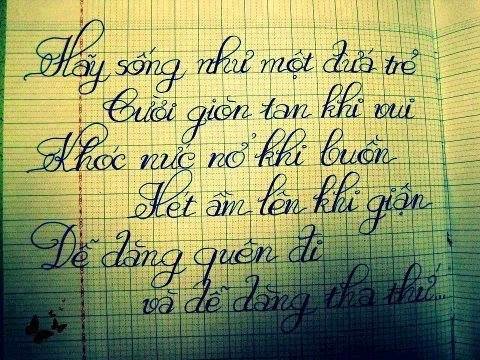 Hãy sống như một đứa trẻ
Cười giòn tan khi vui
Khóc nức nở khi buồn
Hét ầm lên khi giận
Dễ dàng quên đi
và dễ dàng tha thứ...